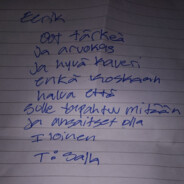 Eerik
Oot tärkeä
Ja arvokas
Ja hyvä kaveri
enkä koskaan
halua että
sulle tapahtuu mitään
Ja ansaitset olla
Iloinen
T: Salla